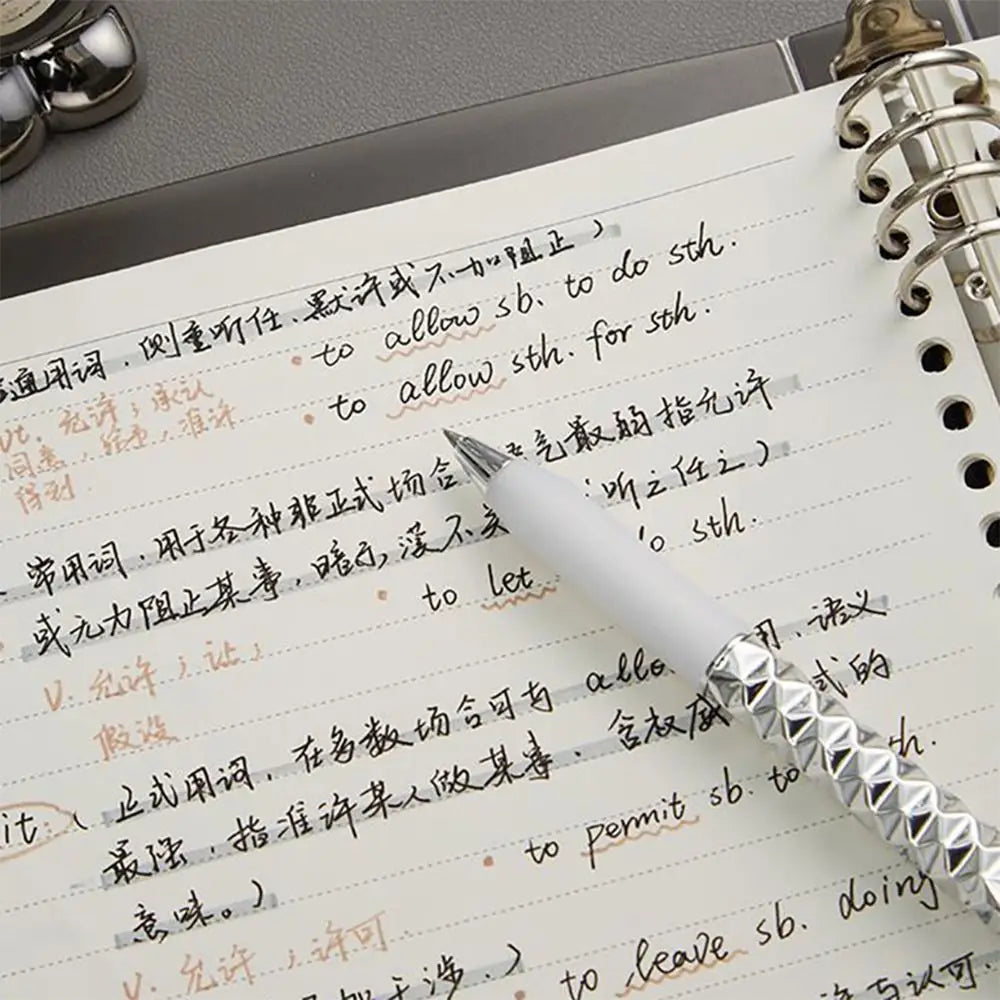 普通用词，侧重听任、默许或不加阻止）
• to allow sb. to do sth.
vt. 允许；承认
• to allow sth. for sth.
同意，给予，准许
得到
常用词，用于各种非正式场合 语气最弱指允许
或无力阻止某事，暗示没不关 听之任之）
• to let do sth.
v. 允许；让；
假设
it:（正式用词，在多数场合可与 allo 用，语义
最强，指准许某人做某事，含权威 式的
意味。）
• to permit sb. to th.
v. 允许；许可
加干涉.）
• to leave sb. doing
与认可.